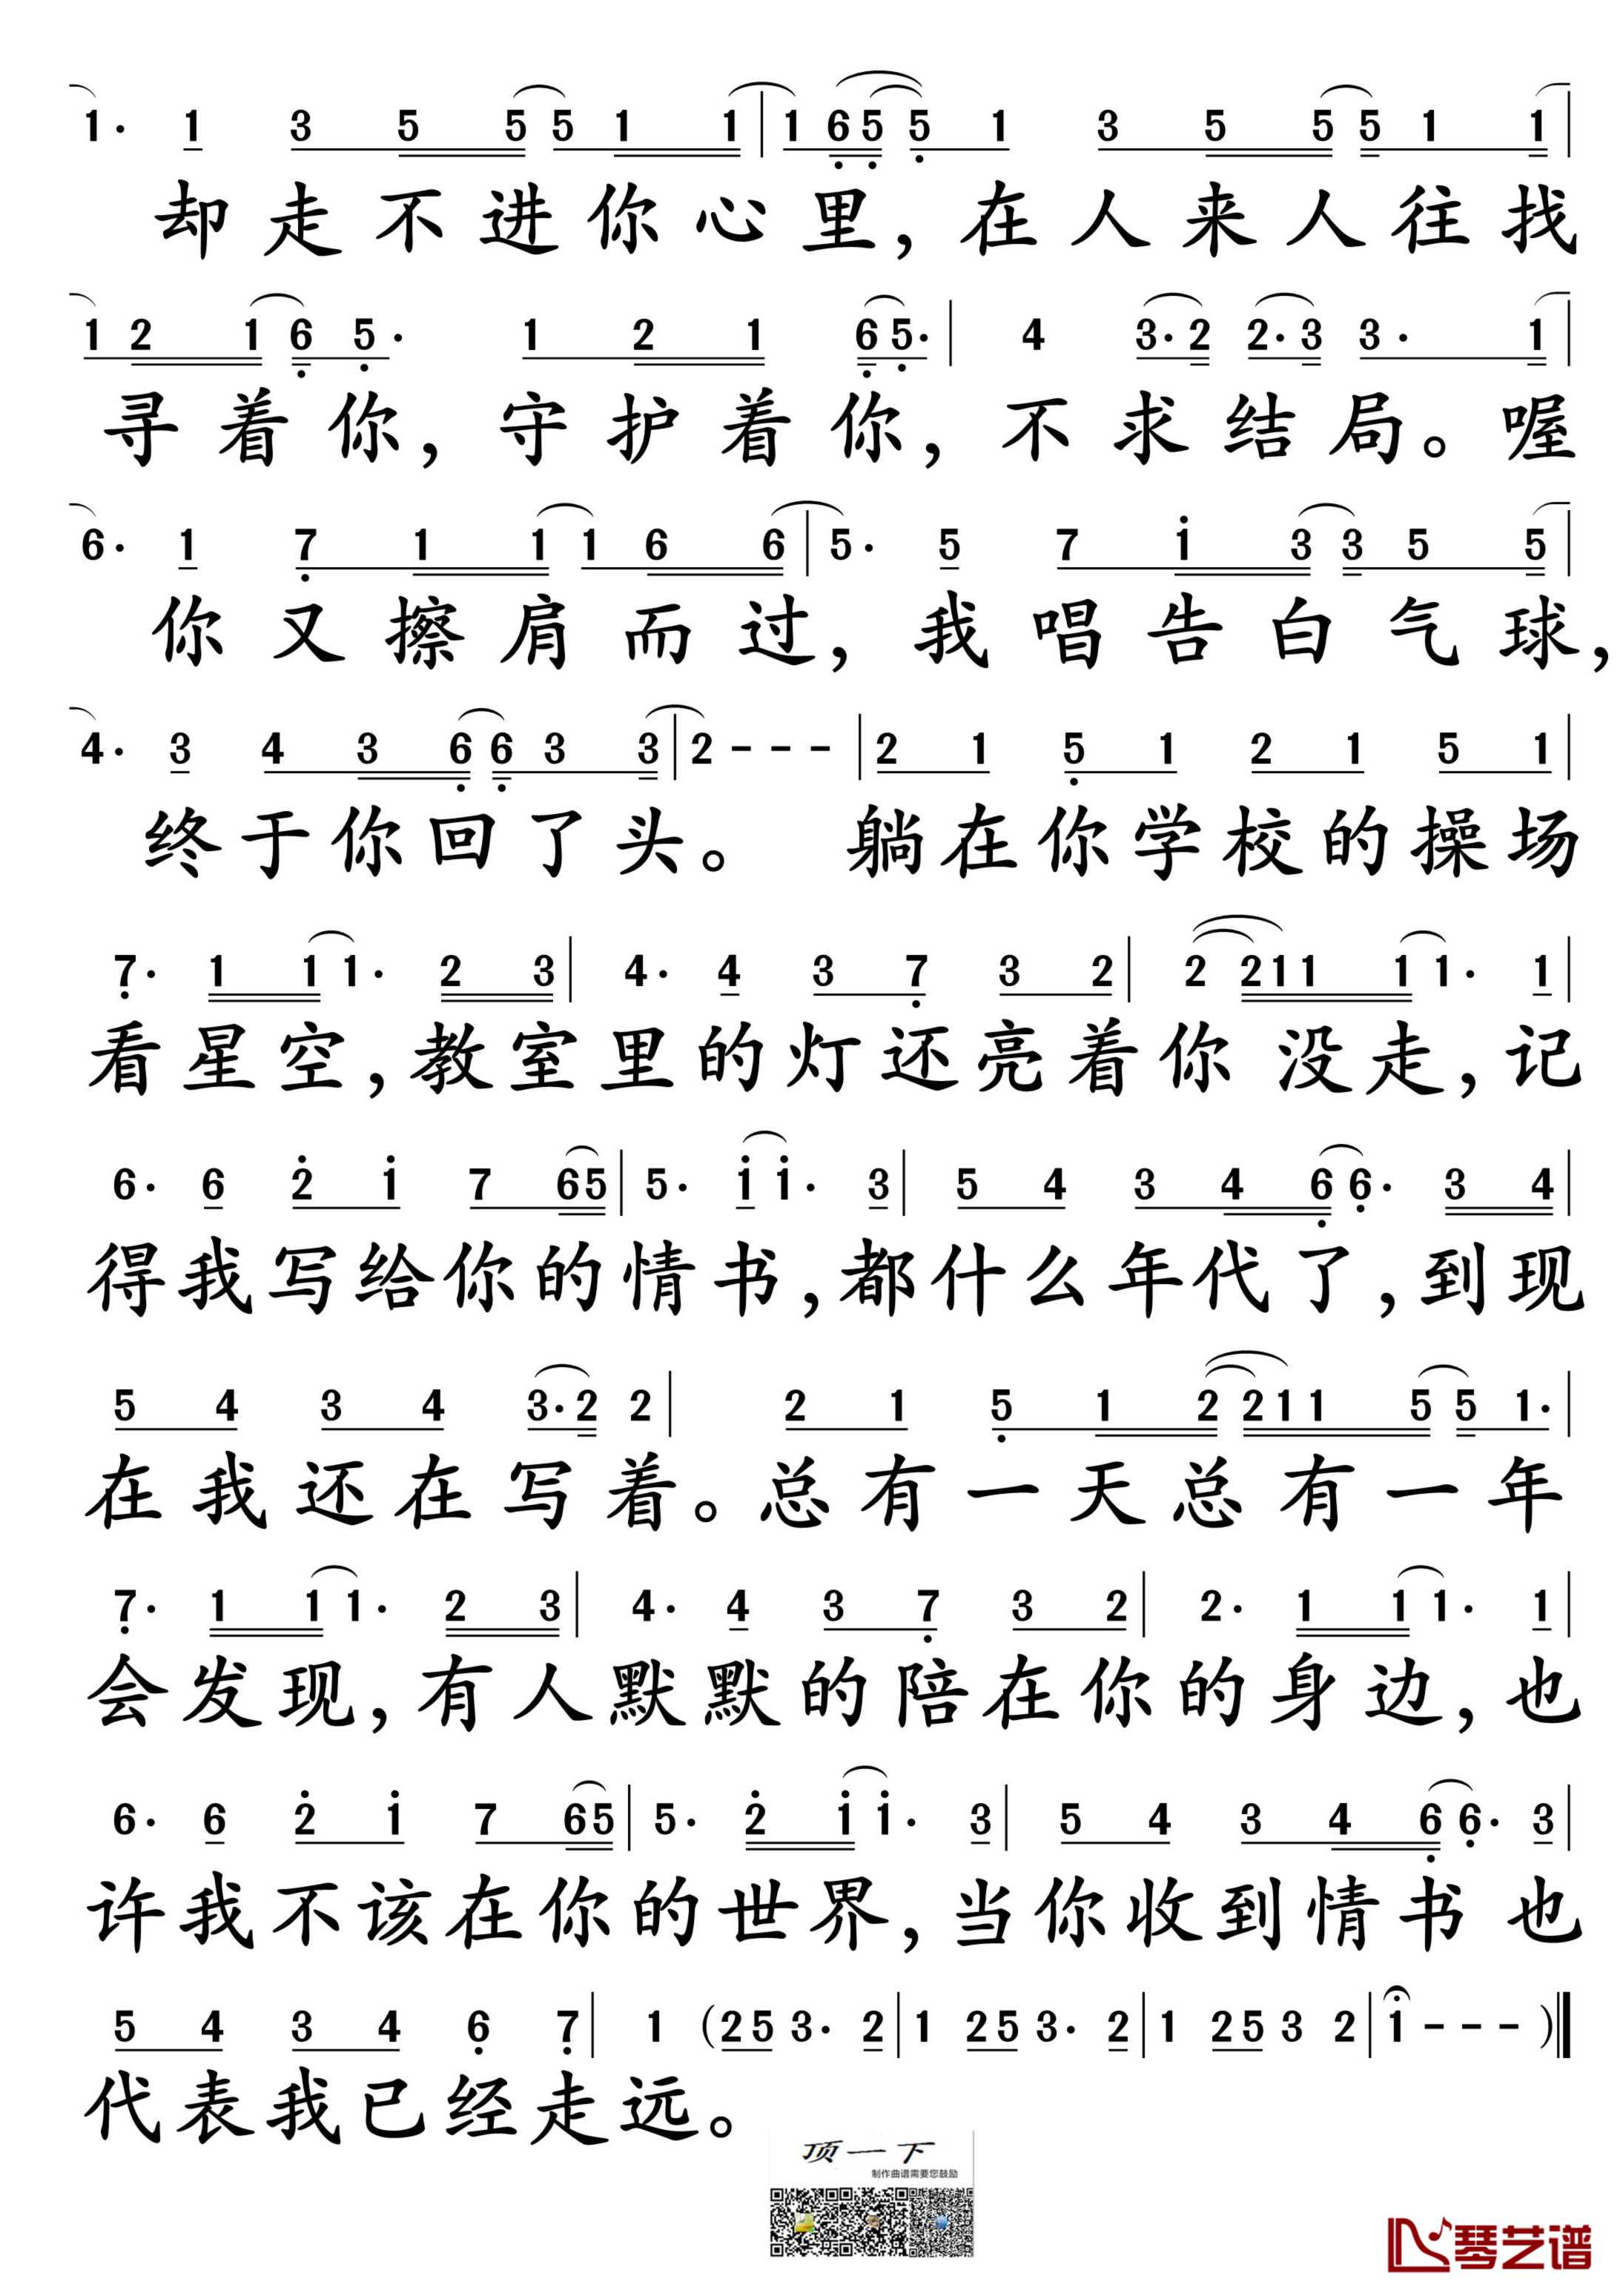 1· 1 3 5 5 5 1 1 | 1 6 5 5 1 3 5 5 5 1 1 |
却走不进你心里，在人来人往找
1 2 1 6 5· 1 2 1 6 5· | 4 3·2 2·3 3· 1 |
寻着你，守护着你，不求结局。喔
6· 1 7 1 1 1 6 6 | 5· 5 7 i 3 3 5 5 |
你又擦肩而过，我唱告白气球，
4· 3 4 3 6 6 3 3 | 2 - - - | 2 1 5 1 2 1 5 1 |
终于你回了头。 躺在你学校的操场
7· 1 1 1· 2 3 | 4· 4 3 7 3 2 | 2 2 1 1 1 1· 1 |
看星空，教室里的灯还亮着你没走，记
6· 6 2 i 7 6 5 | 5· i i· 3 | 5 4 3 4 6 6· 3 4 |
得我写给你的情书，都什么年代了，到现
5 4 3 4 3·2 2 | 2 1 5 1 2 2 1 1 5 5 1· |
在我还在写着。总有一天总有一年
7· 1 1 1· 2 3 | 4· 4 3 7 3 2 | 2· 1 1 1· 1 |
会发现，有人默默的陪在你的身边，也
6· 6 2 i 7 6 5 | 5· 2 i i· 3 | 5 4 3 4 6 6· 3 |
许我不该在你的世界，当你收到情书也
5 4 3 4 6 7 | 1 (2 5 3· 2 | 1 2 5 3· 2 | 1 2 5 3 2 | i - - - )
代表我已经走远。
顶一下
制作曲谱需要您鼓励
琴艺谱